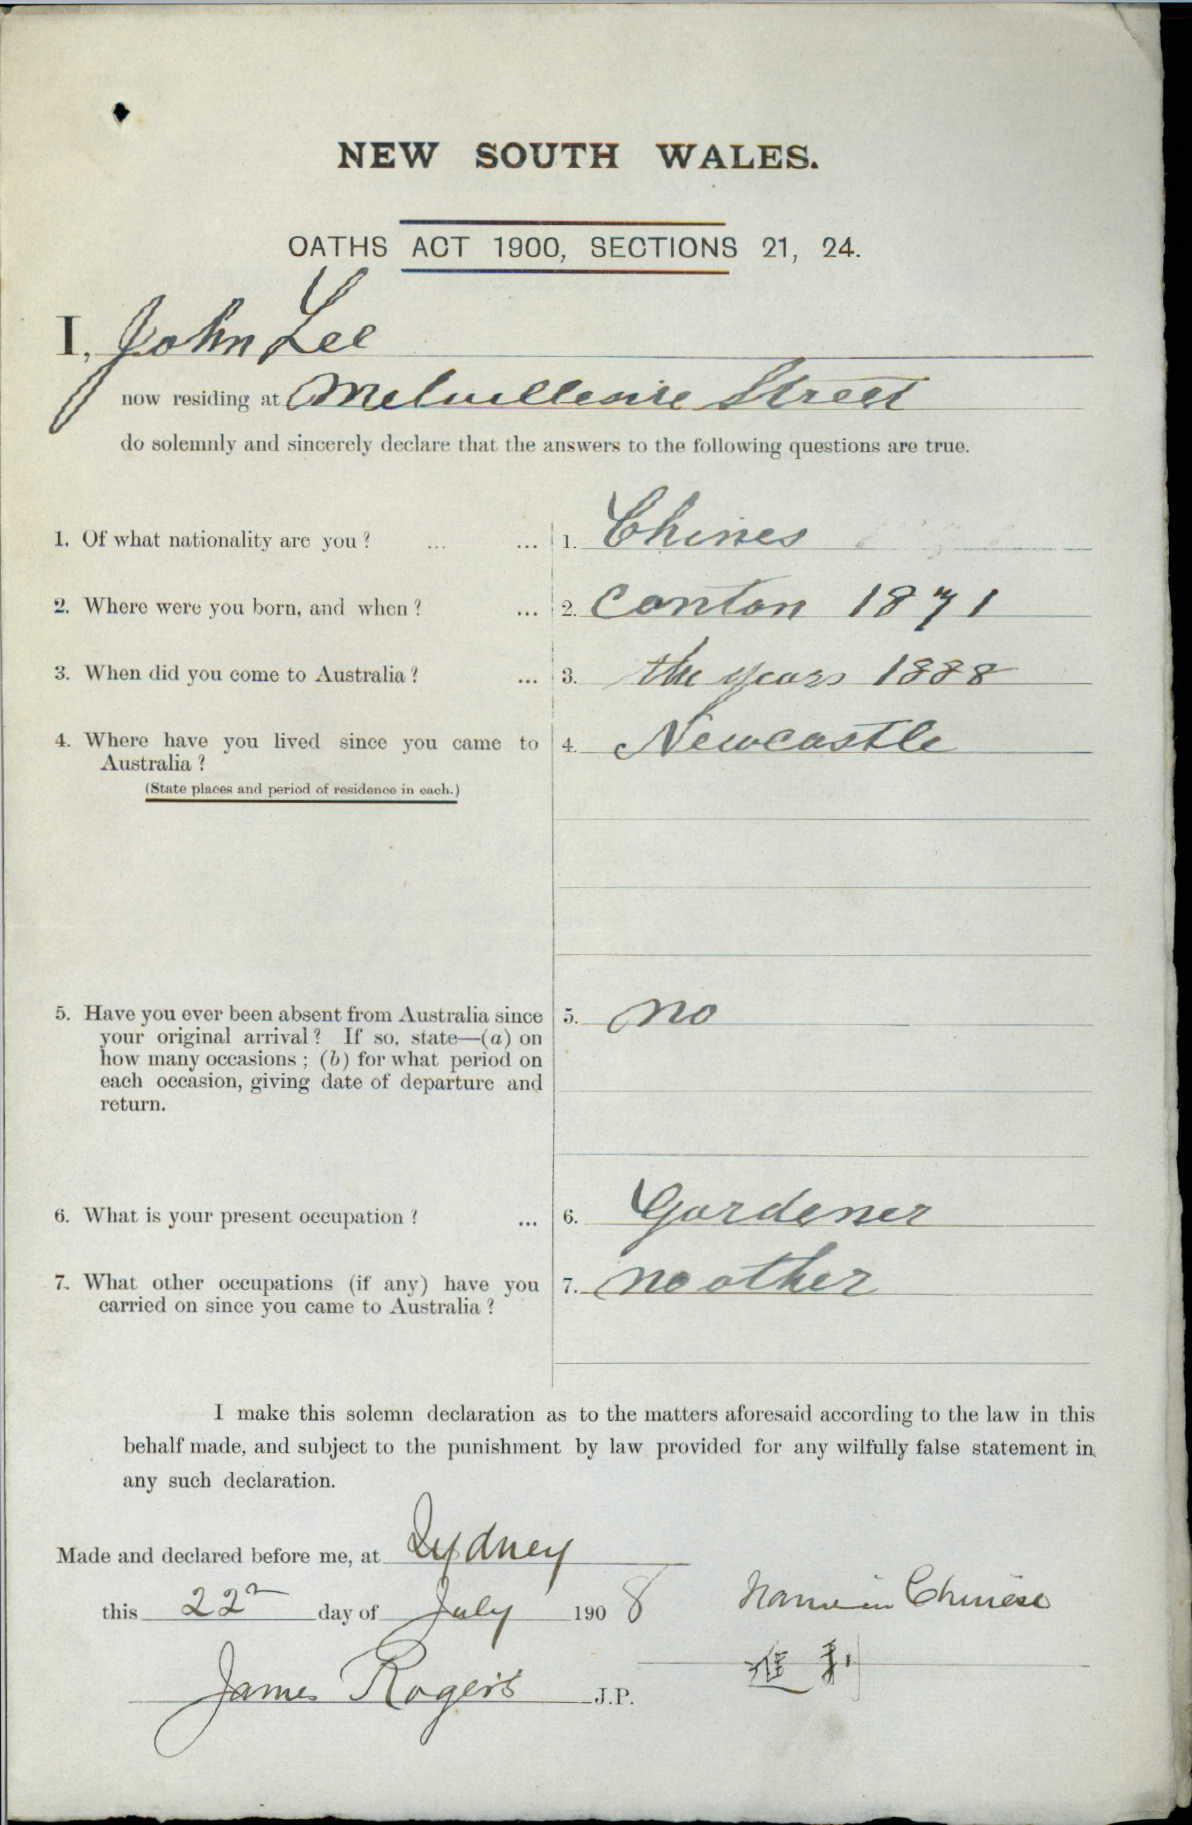 NEW SOUTH WALES.
OATHS ACT 1900, SECTIONS 21, 24.
I, John Lee
now residing at Street
do solemnly and sincerely declare that the answers to the following questions are true.
1. Of what nationality are you ? ... ... 1. Chines
2. Where were you born, and when ? ... 2. Canton 1871
3. When did you come to Australia ? ... 3. the years 1888
4. Where have you lived since you came to 4. Newcastle
Australia ?
(State places and period of residence in each.)
5. Have you ever been absent from Australia since 5. no
your original arrival ? If so, state—(a) on
how many occasions ; (b) for what period on
each occasion, giving date of departure and
return.
6. What is your present occupation ? ... 6. Gardener
7. What other occupations (if any) have you 7. no other
carried on since you came to Australia ?
I make this solemn declaration as to the matters aforesaid according to the law in this
behalf made, and subject to the punishment by law provided for any wilfully false statement in
any such declaration.
Made and declared before me, at Sydney
this 22n day of July 1908 Name in Chinese
進利
James Rogers J.P.